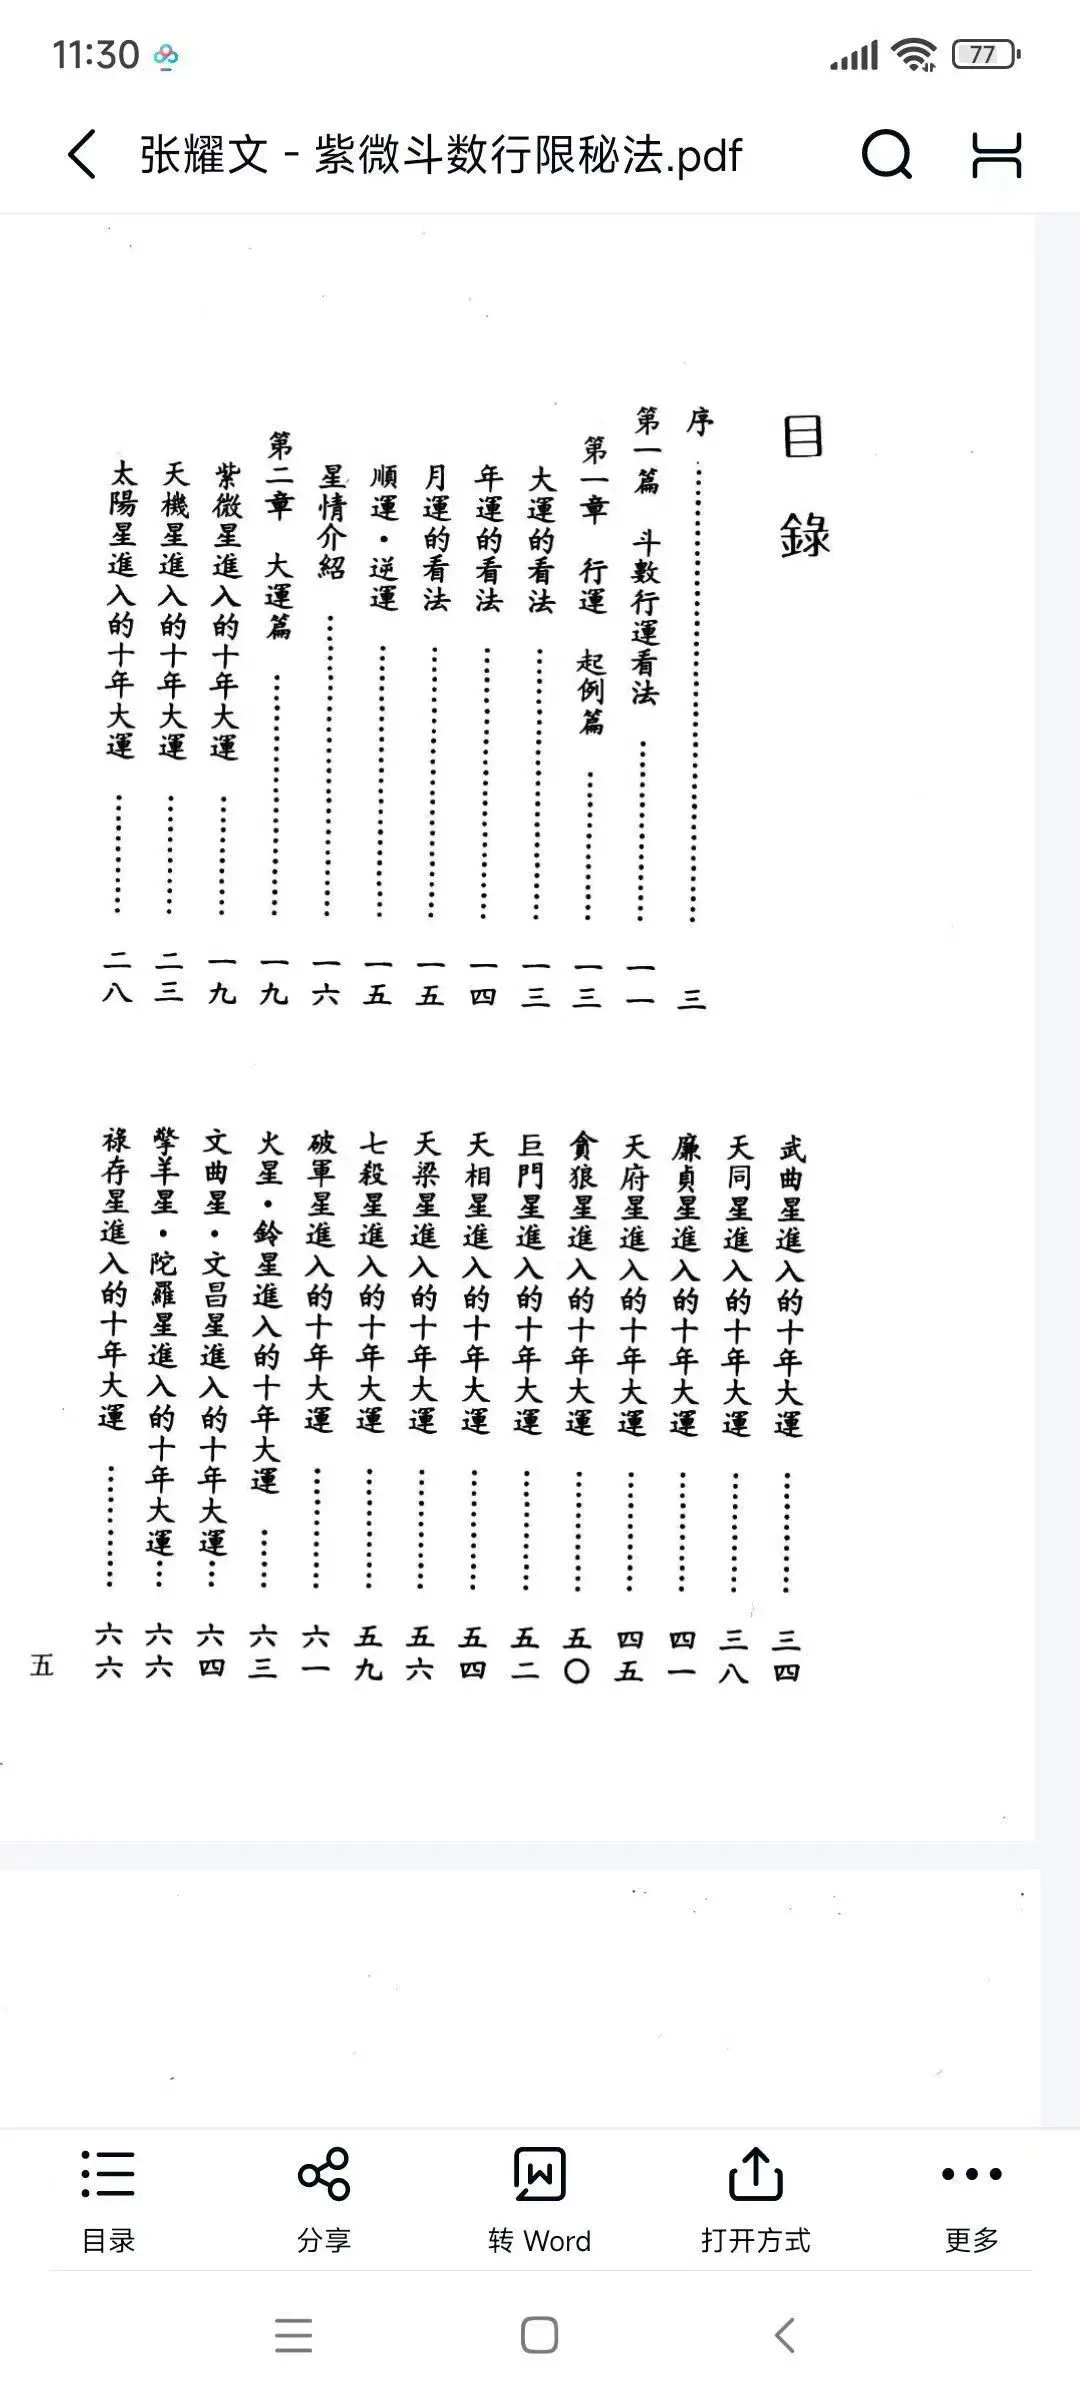 11:30
77
张耀文 - 紫微斗数行限秘法.pdf
目錄
序 三
第一篇 斗數行運看法 一一
第一章 行運 起例篇 一三
大運的看法 一三
年運的看法 一四
月運的看法 一五
順運・逆運 一五
星情介紹 一六
第二章 大運篇 一九
紫微星進入的十年大運 一九
天機星進入的十年大運 二三
太陽星進入的十年大運 二八
武曲星進入的十年大運 三四
天同星進入的十年大運 三八
廉貞星進入的十年大運 四一
天府星進入的十年大運 四五
貪狼星進入的十年大運 五〇
巨門星進入的十年大運 五二
天相星進入的十年大運 五四
天梁星進入的十年大運 五六
七殺星進入的十年大運 五九
破軍星進入的十年大運 六一
火星・鈴星進入的十年大運 六三
文曲星・文昌星進入的十年大運 六四
擎羊星・陀羅星進入的十年大運 六六
祿存星進入的十年大運 六六
五
目录
分享
转 Word
打开方式
更多